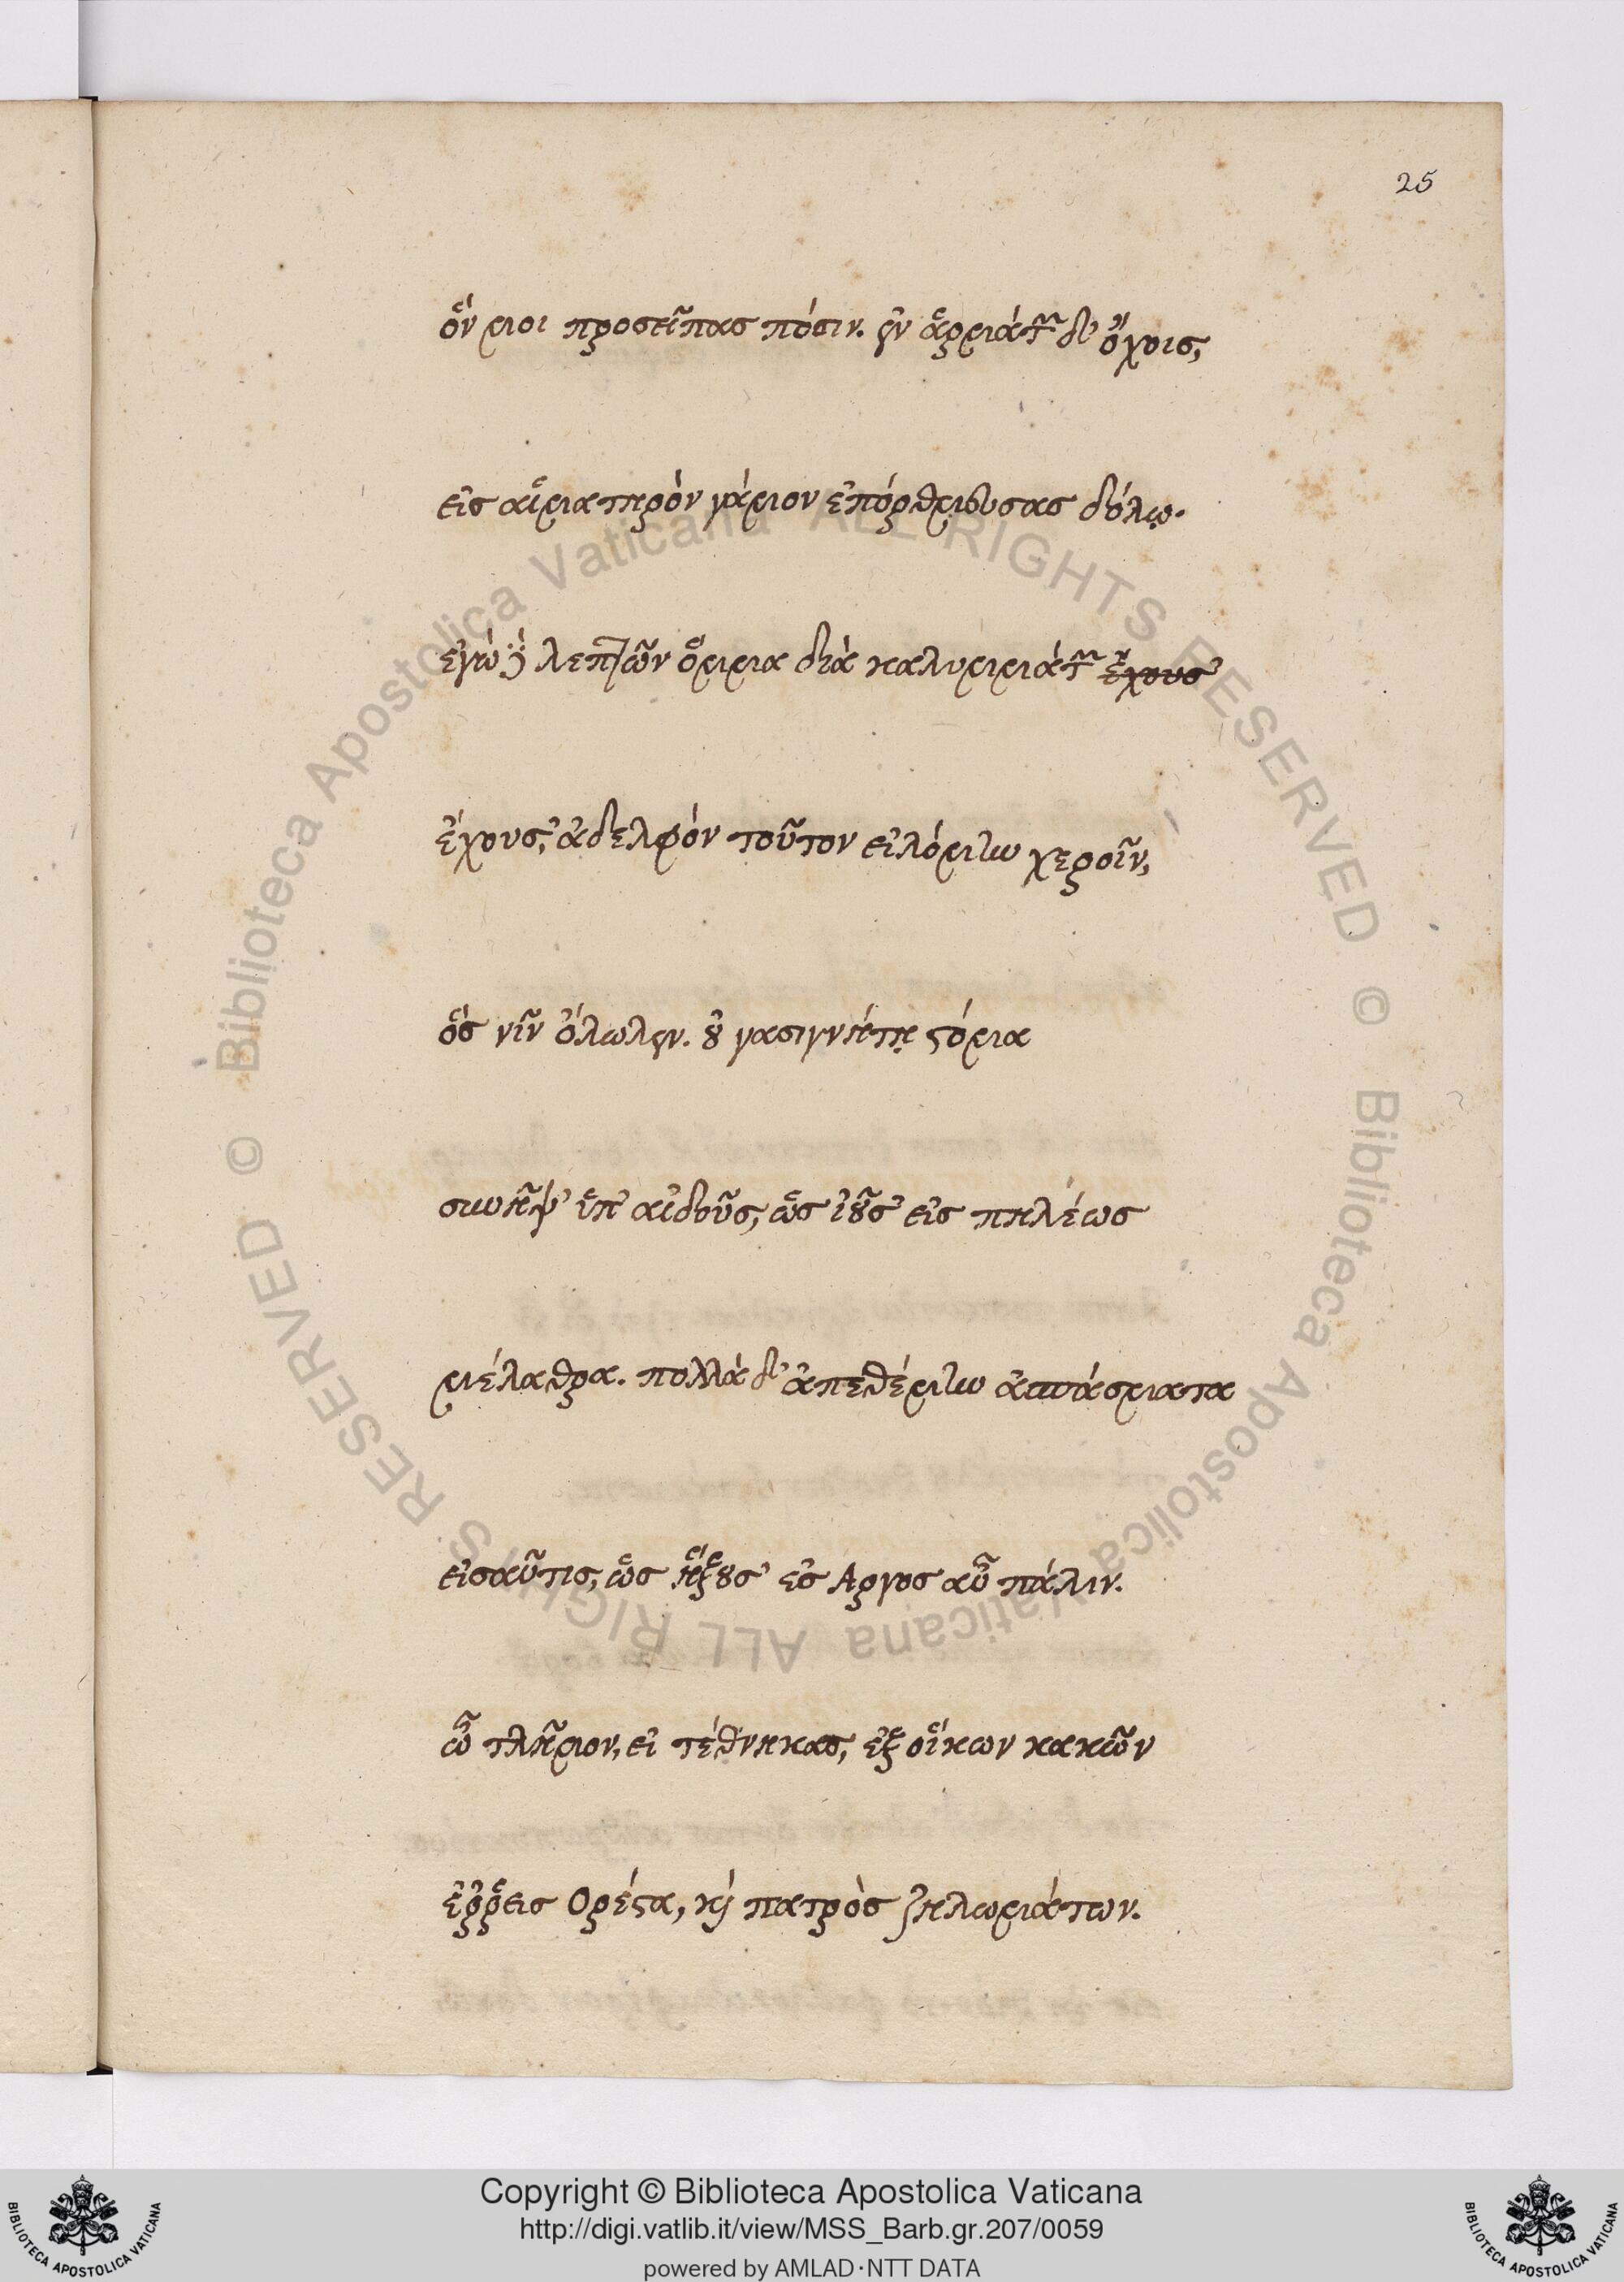 25
ὅν μοι προσεῖπας πόσιν. ἐν ἁρμάτων δ' ὄχοις,
εἰς αἱματηρὸν γάμον ἐπόρθμευσας δόλῳ.
ἐγὼ δὲ λεπτῶν ὄμμα διὰ καλυμμάτων ἔχουσ'
ἔχουσ', ἀδελφόν τοῦτον εἱλόμην χεροῖν,
ὅς νῖν ὄλωλεν. οὐ γασιγνήτῃ στόμα
συνῆψ' ὑπ' αἰδοῦς, ὡς ἰοῦσ' εἰς πηλέως
μέλαθρα. πολλὰ δ' ἀπεθέμην ἀσπάσματα
εἰσαῦτις, ὡς ἥξουσ' ἐς Αργος αὖ πάλιν.
ὦ τλῆμον, εἰ τέθνηκας, ἐξ οἵκων κακῶν
ἔῤῥεις Ορέστα, καὶ πατρὸς ζηλωμάτων.
Copyright © Biblioteca Apostolica Vaticana
http://digi.vatlib.it/view/MSS_Barb.gr.207/0059
powered by AMLAD·NTT DATA
BIBLIOTECA APOSTOLICA VATICANA
BIBLIOTECA APOSTOLICA VATICANA
© Biblioteca Apostolica Vaticana ALL RIGHTS RESERVED © Biblioteca Apostolica Vaticana ALL RIGHTS RESERVED